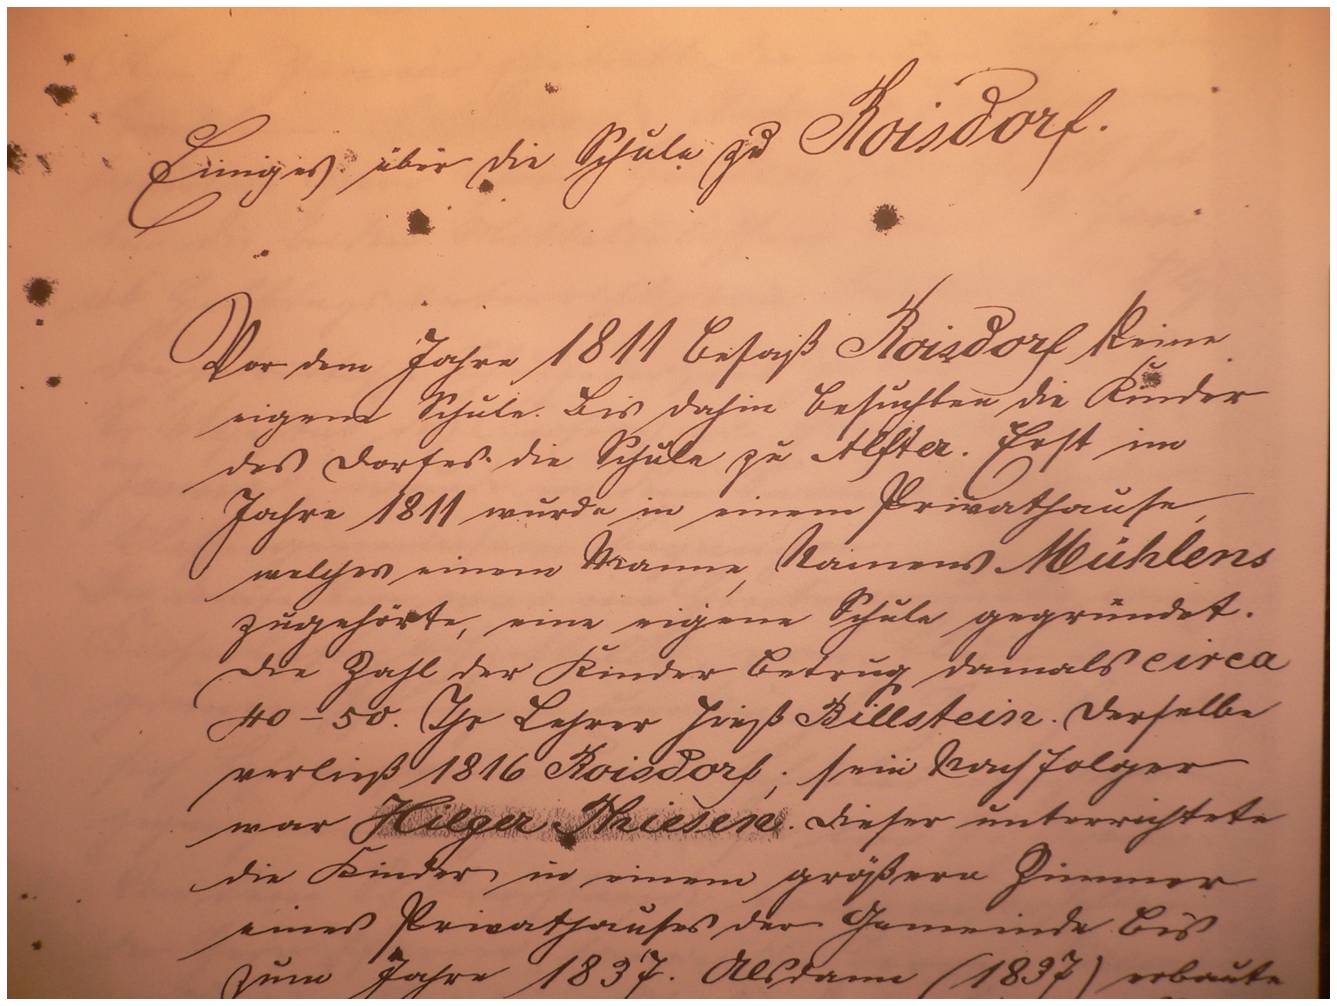 Einiges über die Schule zu Roisdorf.
Vor dem Jahre 1811 besaß Roisdorf keine
eigene Schule. Bis dahin besuchten die Kinder
des Dorfes die Schule zu Alfter. Erst im
Jahre 1811 wurde in einem Privathause,
welches einem Manne, Namens Mühlens
zugehörte, eine eigene Schule gegründet.
Die Zahl der Kinder betrug damals circa
40-50. Ihr Lehrer hieß Billstein. Derselbe
verließ 1816 Roisdorf; sein Nachfolger
war Hilger Thiesen. Dieser unterrichtete
die Kinder in einem größern Zimmer
eines Privathauses der Gemeinde bis
zum Jahre 1837. Alsdann (1837) erbaute